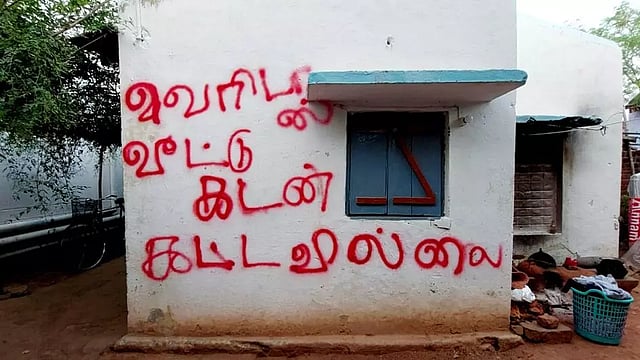 வெரிடாஸ்
வீட்டு
கடன்
கட்டவில்லை